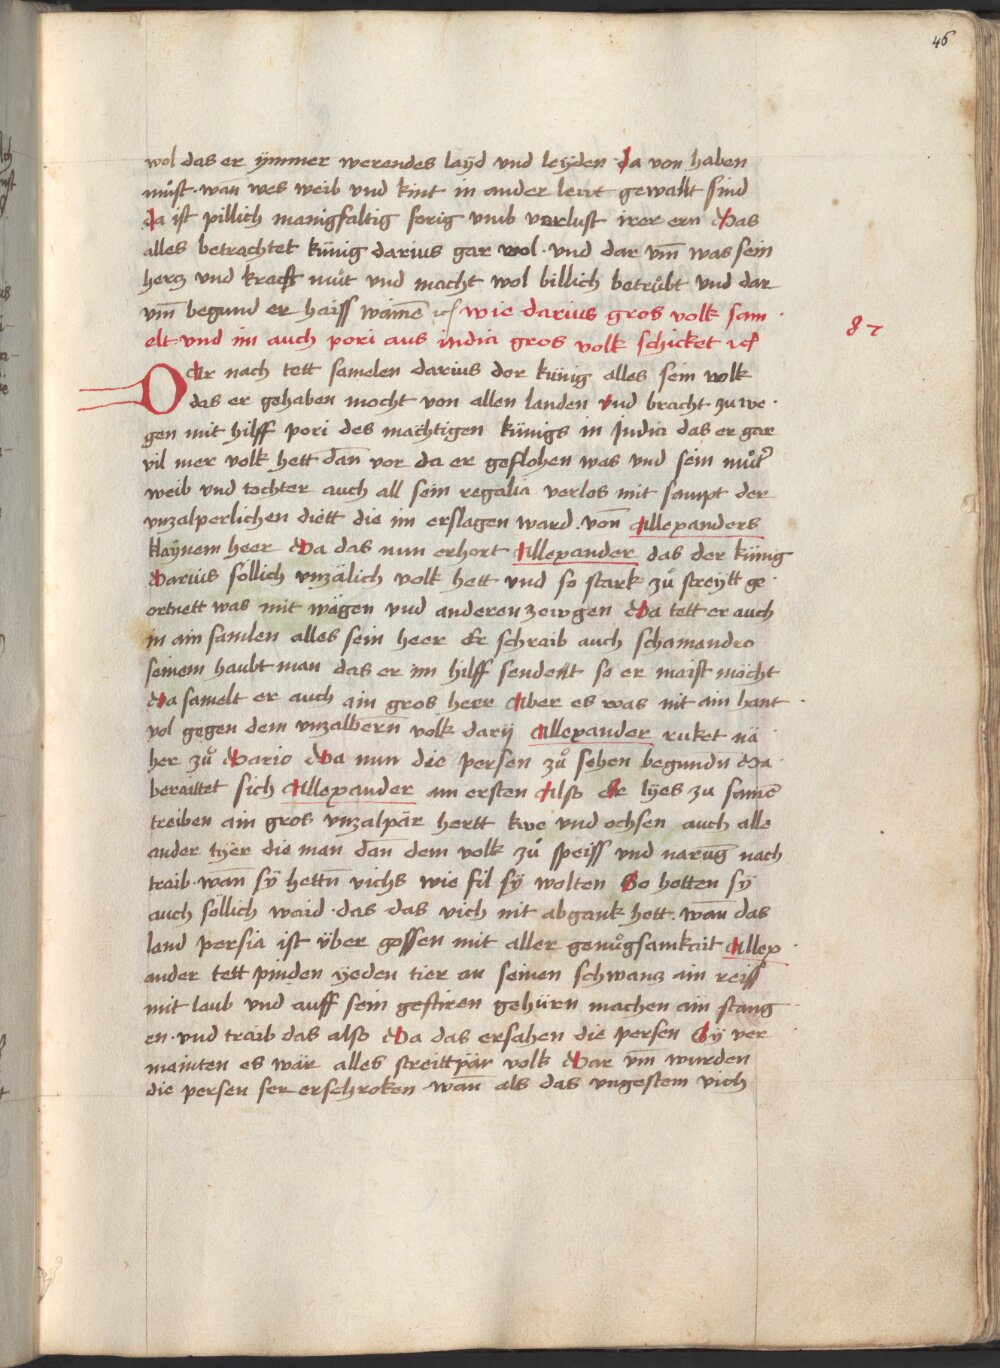 46
wol das er ÿmmer werendes laÿd vnd leÿden da von haben
můst · wan̄ wes weib vnd kint in ander lewt gewallt sind
da ist pillich manigfaltig sorig vmb verlust irer ern Das
alles betrachtet künig darius gar wol · vnd dar vm̄ was sein
hercz vnd kraft můt vnd macht wol billich betrůbt vnd dar
vm̄ begund er haiss wainē ⁊cͣ wie darius gros volk sam
elt · vnd im auch pori aus india gros volk schicket ⁊cͣ
87
Dar nach tett samelen darius der künig alles sein volk
das er gehaben mocht von allen landen vnd bracht zu we
gen mit hilff pori des mächtigen künigs in Jndia das er gar
vil mer volk hett dan̄ vor da er geflohen was vnd sein můt̄
weib vnd tochter auch all sein regalia verlos mit sampt der
vnzalperlichen diett die im erslagen ward · von̄ Allexanders
klaÿnem heer Da das nun erhort Allexander das der künig
Darius sollich vnzälich volk hett vnd so stark zů streÿtt ge
ortnett was mit wägen vnd anderen zewgen Da tett er auch
in ain samlen alles sein heer Er schraib auch schamandro
seinem haubt man das er im hilff sendent so er maist möcht
Da samelt er auch ain gros heer Aber es was nit ain hant
vol gegen dem vnzalbern̄ volk darij Allexander ruket nä
her zů Dario Da nun die persen zů sehen begundn̄ Da
beraittet sich Allexander am ersten Also Er lÿes zu samē
treiben ain gros vnzalpär hertt kwe vnd ochsen auch alle
ander tÿer die man dan̄ dem volk zů speiss vnd narūg nach
traib · wan̄ sÿ hettn̄ vichs wie fil sÿ wolten So hetten sÿ
auch söllich waid · das das vich nit abgank hett · wan̄ das
land persia ist über gossen mit aller genůgsamkait Allex
ander tett pinden ÿeden tier an seinen schwancz ain reiss
mit laub vnd auff sein gestiren gehürn machen ain stang
en · vnd traib das also Da das ersahen die persen Sÿ ver
mainten es wär alles streittpär volk Dar vm̄ wurden
die persen ser erschroken wan̄ als das vngestem vich